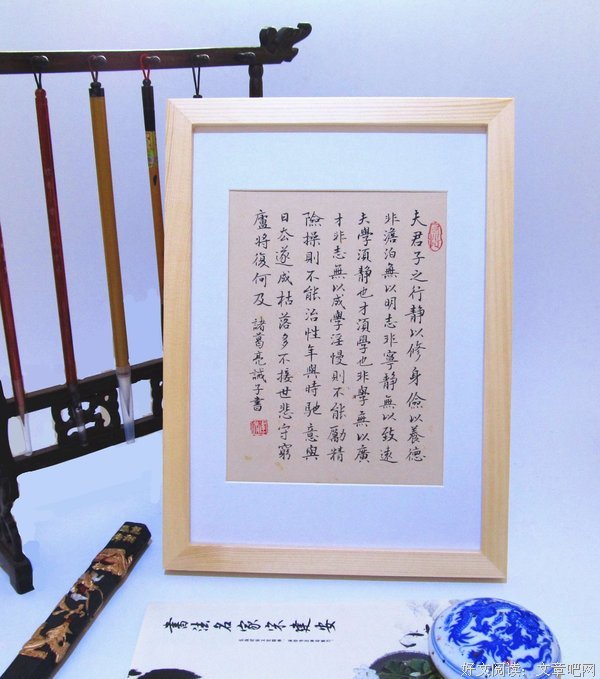 夫君子之行静以修身儉以養德
非澹泊無以明志非寧静無以致遠
夫學須静也才須學也非學無以廣
才非志無以成學淫慢則不能勵精
險操則不能治性年與時馳意與
日去遂成枯落多不接世悲守窮
廬將復何及 諸葛亮誡子書
書法名家宋建安
好文阅读：文章吧网